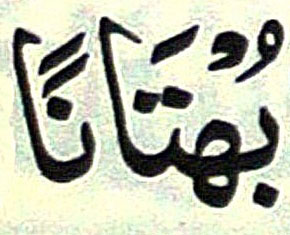 بُهْتَانًا